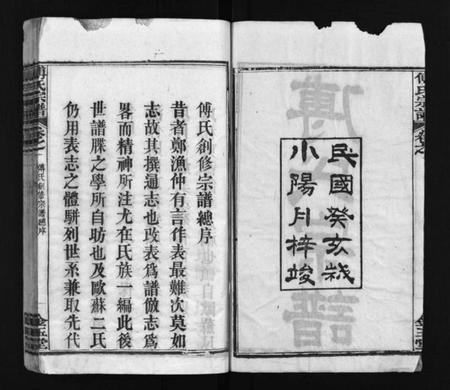 民國癸亥歲
小陽月梓竣
傅氏宗譜
傅氏創修宗譜總序
昔者鄭漁仲有言作表最難次莫如
志故其撰通志也攺表為譜倣志為
畧而精神所注尤在氏族一編此後
世譜牒之學所自昉也及歐蘇二氏
仍用表志之體駢列世系兼取先代
傅氏宗譜
卷之
傅氏創修宗譜總序